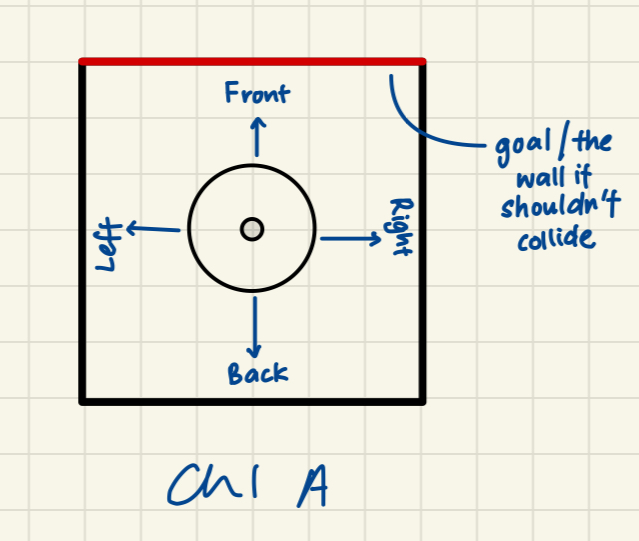 Front
goal/the
wall if
shouldn't
collide
Left
Right
Back
Ch1 A